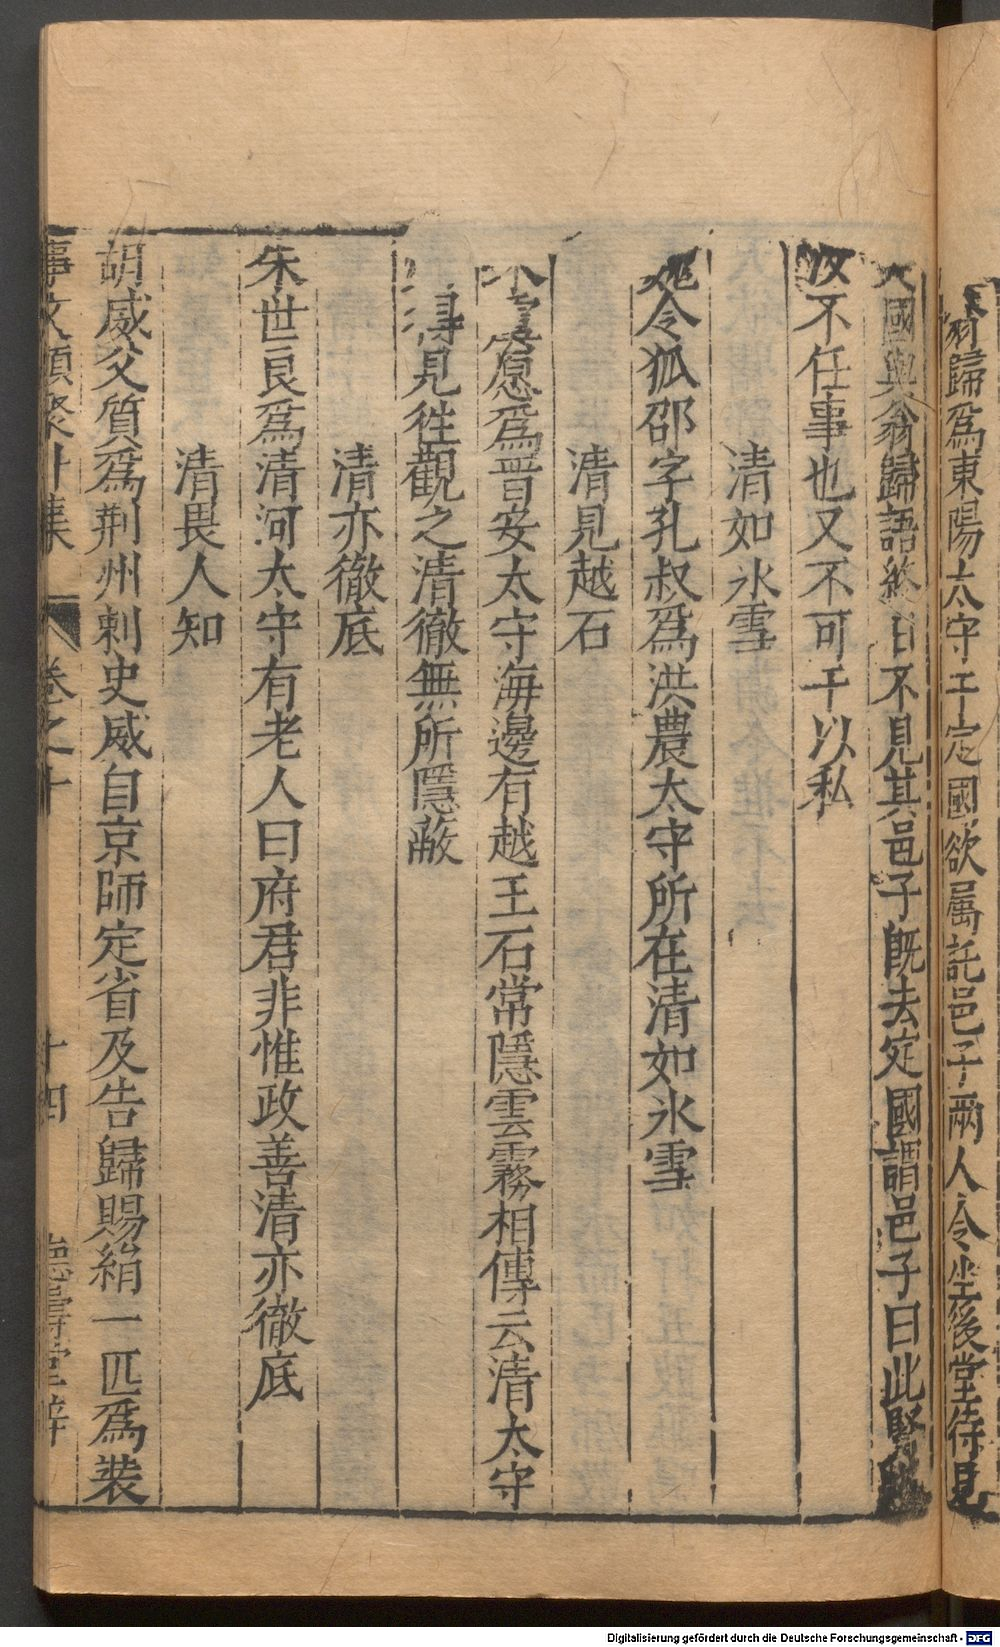 翁歸爲東陽太守于定國欲屬託邑子兩人令坐後堂待見
國與翁歸語終日不見其邑子既去定國謂邑子曰此賢
汝不任事也又不可干以私
清如氷雪
令狐邵字孔叔爲洪農太守所在清如氷雪
清見越石
愿爲晉安太守海邊有越王石常隱雲霧相傳云清太守
得見徃觀之清徹無所隱蔽
清亦徹底
朱世良爲清河太守有老人曰府君非惟政善清亦徹底
清畏人知
胡威父質爲荆州刺史威自京師定省及告歸賜絹一匹爲裝
事文類聚外集 卷之十 十四 德壽堂梓
Digitalisierung gefördert durch die Deutsche Forschungsgemeinschaft - DFG